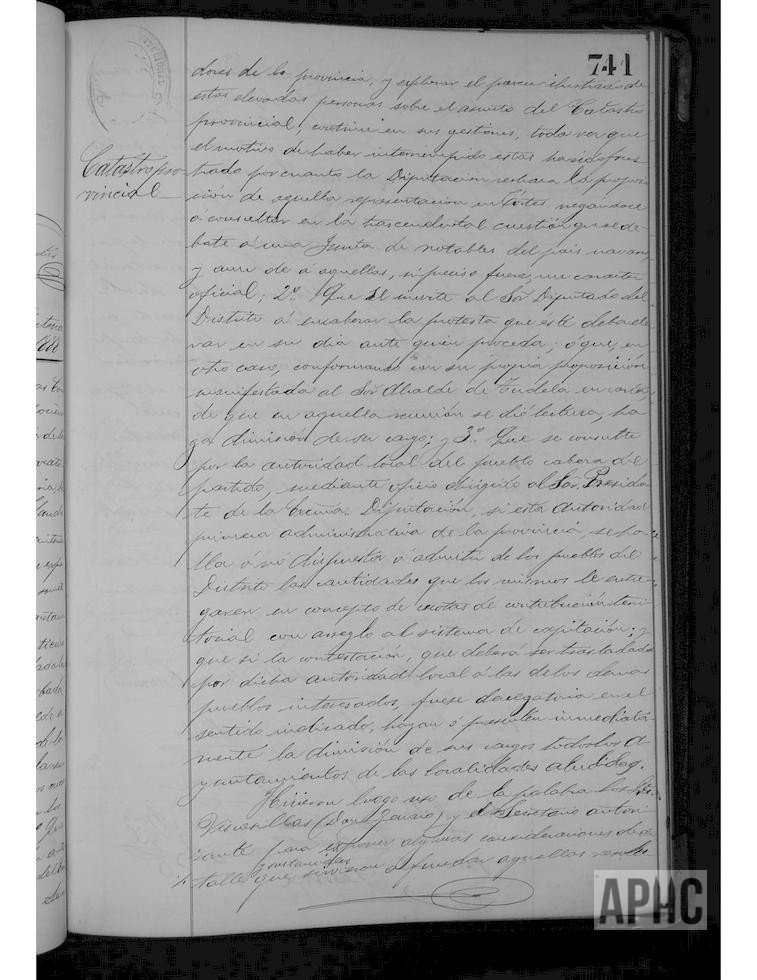 741
dores de la provincia, y explorar el parecer ilustrado de
estas elevadas personas sobre el asunto del Catastro
provincial, continúe en sus gestiones, toda vez que
el motivo de haber interrumpido estas ha sido frus-
Catastro pro-
vincial
trado por cuanto la Diputación rechaza la propo-
sición de aquella representación en Cortes, negándose
á consultar en la trascendental cuestión que se de-
bate á una Junta de notables del país navarro
y aun de á aquellas, si preciso fuese, un caracter
oficial; 2º. Que se invite al Sor Diputado del
Distrito á encabezar la protesta que éste deba ele-
var en su dia ante quien proceda; ó que, en
otro caso, conformando con su propia proposición
manifestada al Sor Alcalde de Tudela en carta,
de que en aquella reunión se dió lectura, ha-
ga dimisión de su cargo; y 3º. Que se consulte
por la autoridad local del pueblo cabeza del
partido, mediante oficio dirigido al Sor. Presiden-
te de la Excma. Diputación, si esta autoridad
primera administrativa de la provincia, se ha-
lla ó nó dispuesta á admitir de los pueblos del
Distrito las cantidades que los mismos le entre-
gasen en concepto de cuotas de contribución terri-
torial con arreglo al sistema de capitación; y
que si la contestación, que deberá ser trasladada
por dicha autoridad local á las de los demas
pueblos interesados, fuese denegatoria en el
sentido indicado, hagan ó presenten inmediata-
mente la dimisión de sus cargos todos los A-
yuntamientos de las localidades aludidas.
Hicieron luego uso de la palabra los Sres
Viscasillas (Don Genaro) y el Secretario autori-
zante para exponer algunas consideraciones de de-
talle que sirvieron á fundar aquellas
APHC